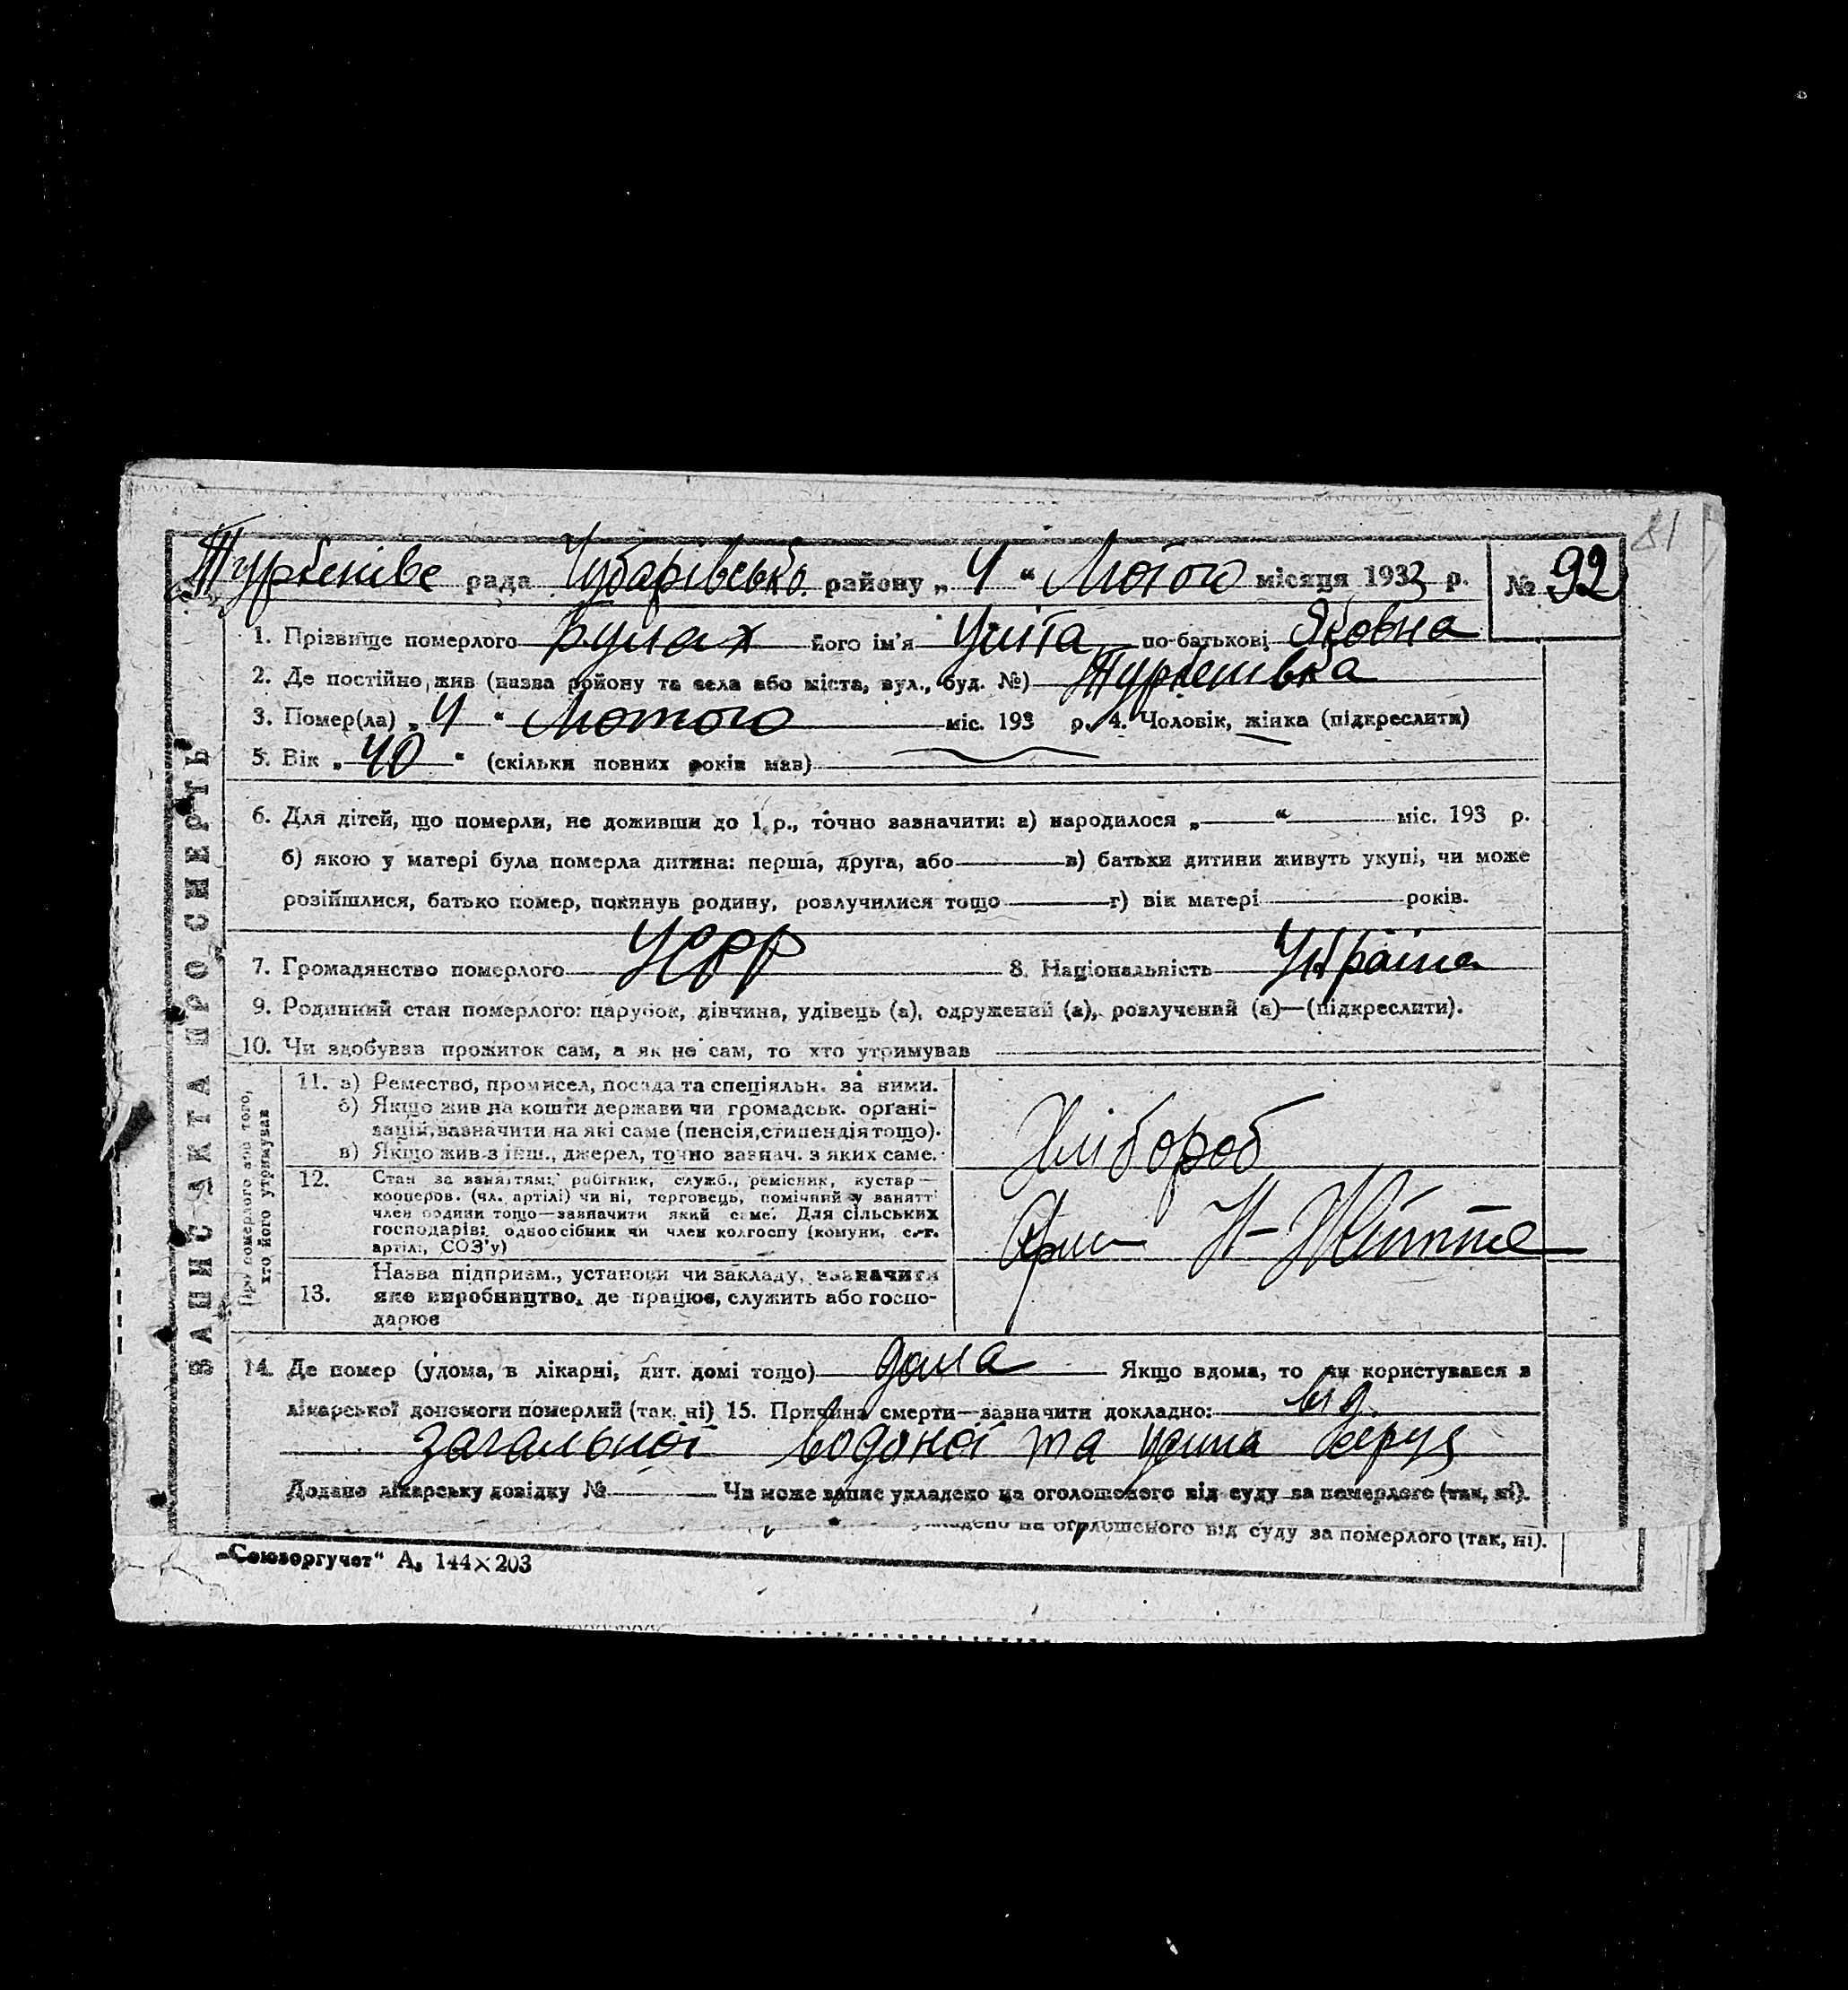 81
рада Чубарівсько району „ 4 “ Лютого місяця 1933 р. № 92
ЗАПИС АКТА ПРО СМЕРТЬ
1. Прізвище померлого Булах його ім'я Уліта по-батькові Яковна
2. Де постійно жив (назва району та села або міста, вул., буд. №)
3. Помер(ла) „ 4 “ Лютого міс. 193 р. 4. Чоловік, жінка (підкреслити)
5. Вік „ 40 “ (скільки повних років мав)
6. Для дітей, що померли, не доживши до 1 р., точно зазначити: а) народилося „ “ міс. 193 р.
б) якою у матері була померла дитина: перша, друга, або в) батьки дитини живуть укупі, чи може
розійшлися, батько помер, покинув родину, розлучилися тощо г) вік матері років.
7. Громадянство померлого УСРР 8. Національність Україна
9. Родинний стан померлого: парубок, дівчина, удівець (а), одружений (а), розлучений (а)—(підкреслити).
10. Чи здобував прожиток сам, а як не сам, то хто утримував
Про померлого або того, хто його утримував
11. а) Ремество, промисел, посада та спеціяльн. за ними.
б) Якщо жив на кошти держави чи громадськ. органі-
зацій, зазначити на які саме (пенсія, стипендія тощо).
в) Якщо жив з інш., джерел, точно зазнач. з яких саме.
Хлібороб
12. Стан за заняттям: робітник, служб., ремісник, кустар—
кооперов. (чл. артілі) чи ні, торговець, помічний у занятті
член родини тощо—зазначити який саме. Для сільських
господарів: одноосібник чи член колгоспу (комуни, с.-г.
артіль, СОЗ'у)
Життє
13. Назва підприєм., установи чи закладу, зазначити
яке виробництво, де працює, служить або госпо-
дарює
14. Де помер (удома, в лікарні, дит. домі тощо) дома Якщо вдома, то чи користувався з
лікарської допомоги померлий (так, ні) 15. Причина смерти—зазначити докладно: від
загальної водяної та
Додано лікарську довідку № Чи може запис укладено на оголошеного від суду за померлого (так, ні).
укладено на оголошеного від суду за померлого (так, ні).
„Союзоргучет“ А, 144×203